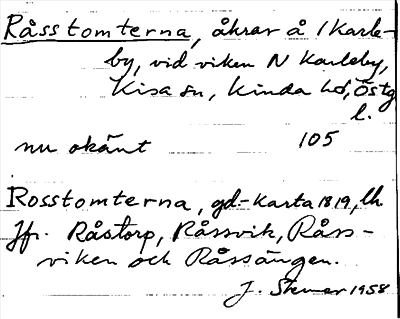 Råsstomterna, åkrar å 1 Karle-
by, vid viken N Karleby,
Kisa sn, Kinda hd, Östg
l.
nu okänt 105
Rosstomterna, gd.-karta 1819, lh
Jfr. Råstorp, Råssvik, Råss-
viken och Råssängen.
J. 1958